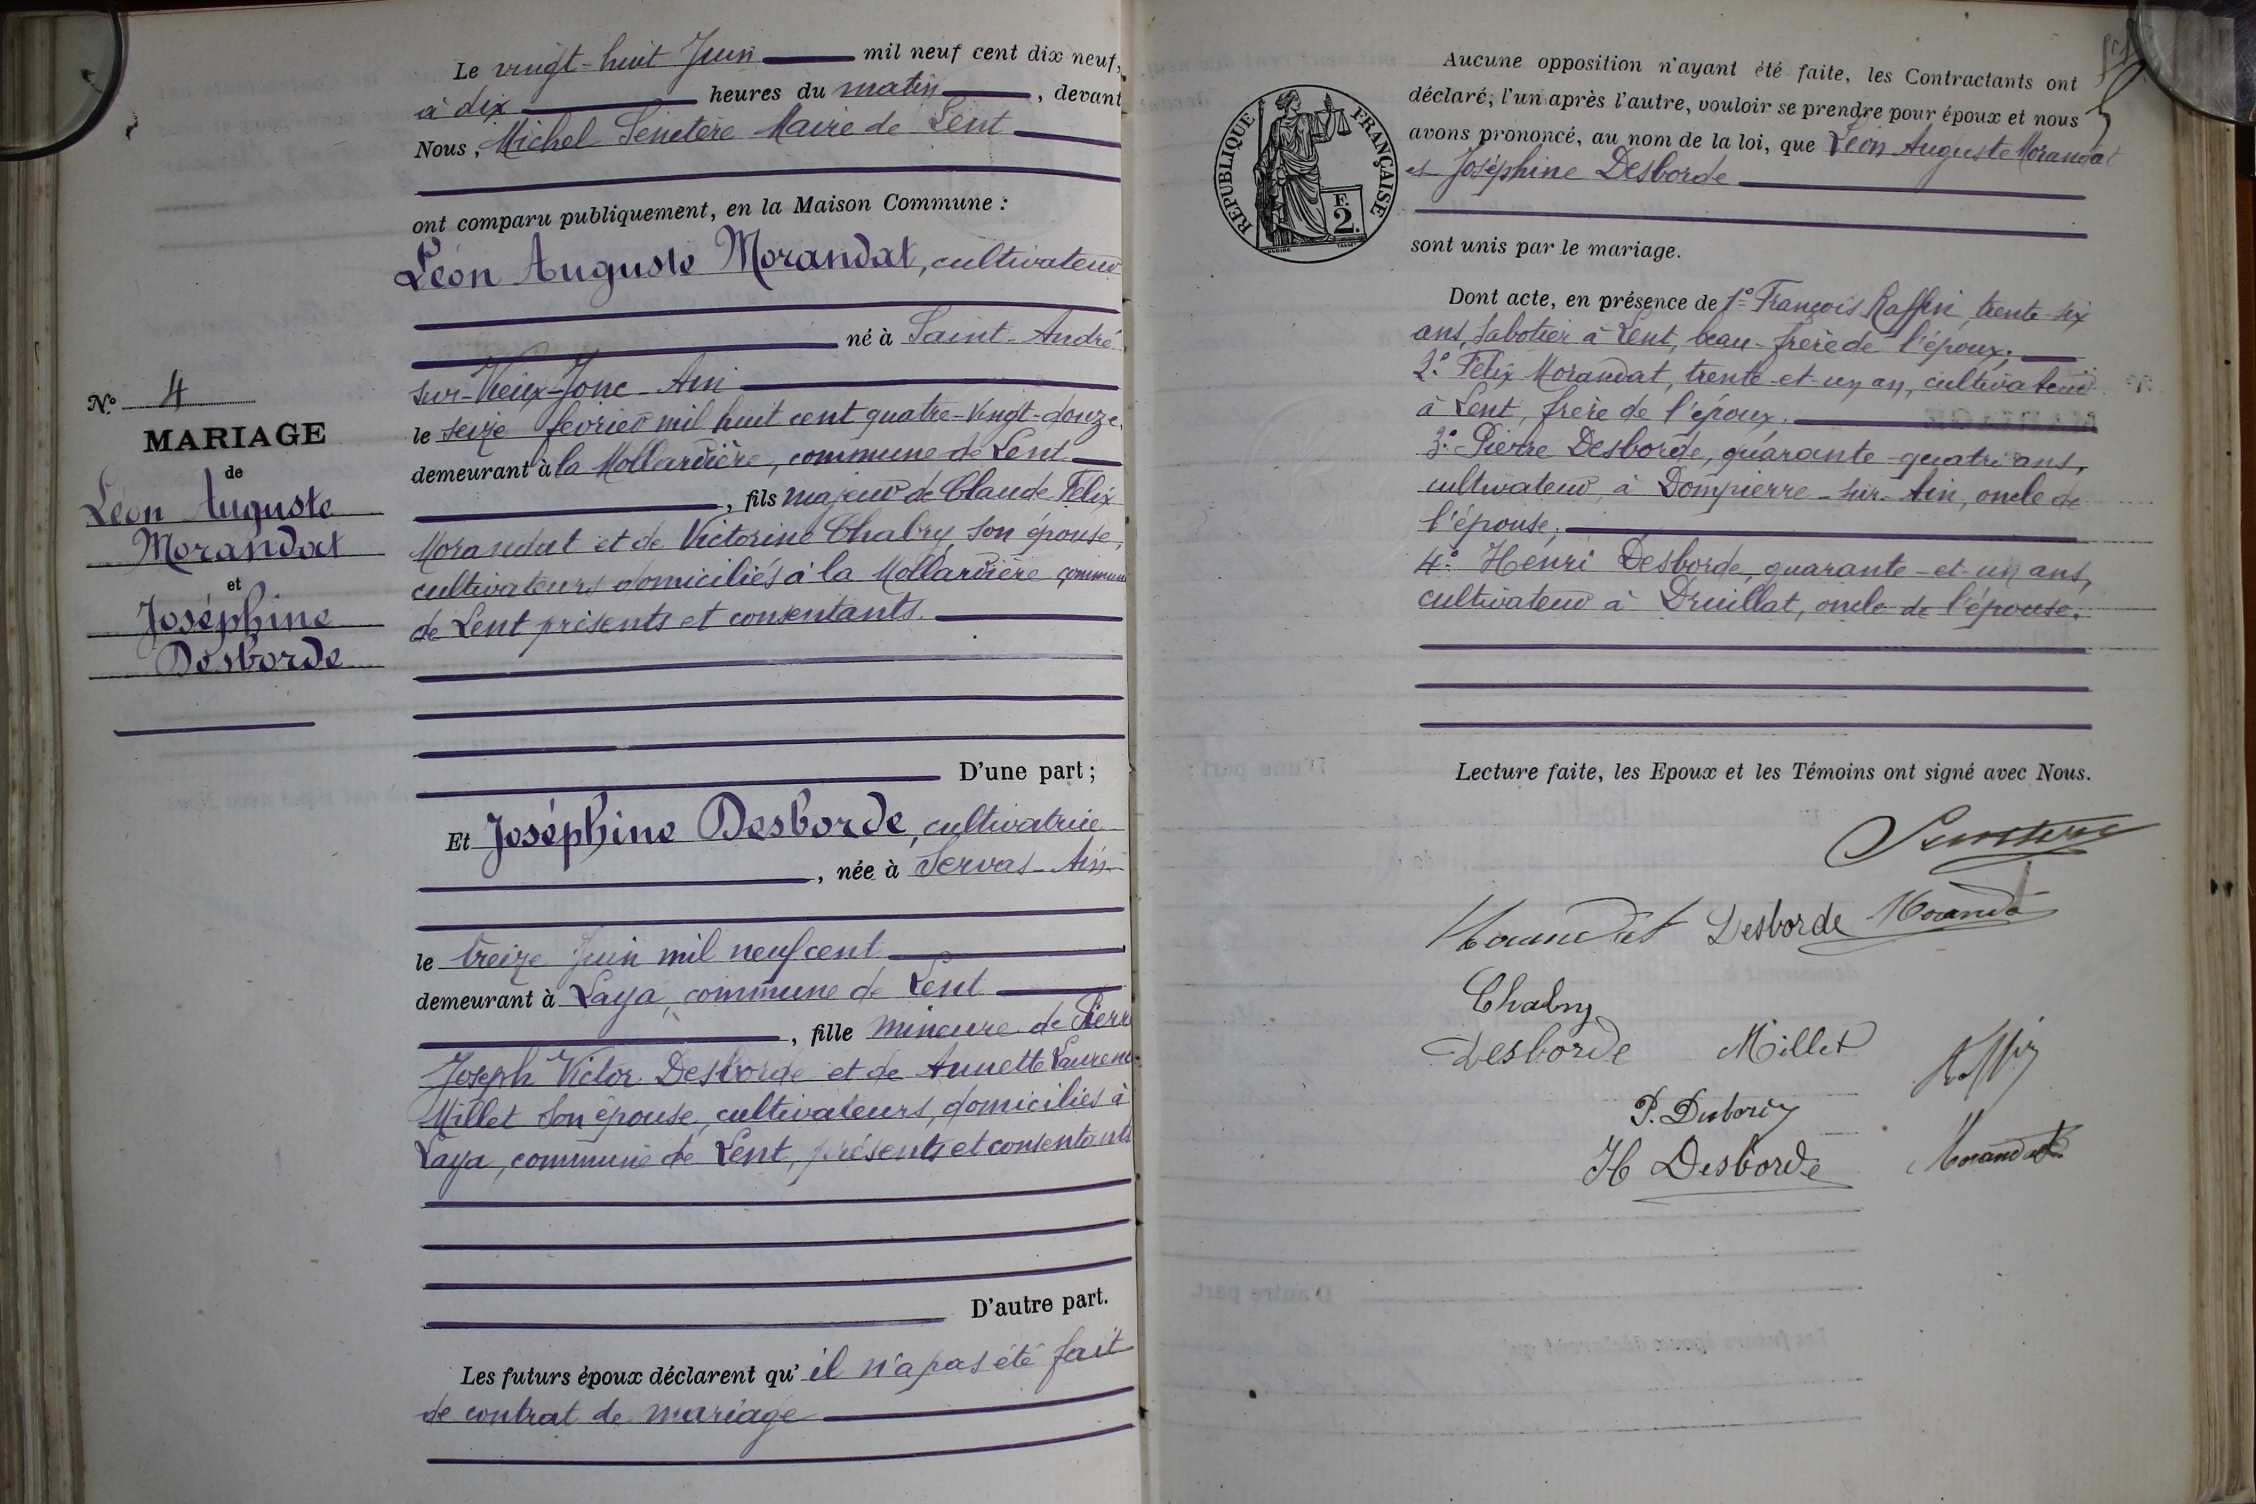 Le vingt-huit Juin mil neuf cent dix neuf,
à dix heures du matin, devant
Nous, Michel Sénetère Maire de Lent
ont comparu publiquement, en la Maison Commune :
Léon Auguste Morandat, cultivateur
né à Saint-André-
sur-Vieux-Jonc-Ain
le seize février mil huit cent quatre-vingt-douze,
demeurant à la Mollardière, commune de Lent
, fils majeur de Claude Félix
Morandat et de Victorine Chabry son épouse,
cultivateurs domiciliés à la Mollardière commune
de Lent présents et consentants.
D'une part ;
Et Joséphine Desborde, cultivatrice
, née à Servas-Ain-
le treize Juin mil neuf cent
demeurant à Laya, commune de Lent
, fille mineure de Pierre
Joseph Victor Desborde et de Annette Laurence
Millet son épouse, cultivateurs, domiciliés à
Laya, commune de Lent, présents et consentants
D'autre part.
Les futurs époux déclarent qu'il n'a pas été fait
de contrat de mariage
N° 4
MARIAGE
de
Léon Auguste
Morandat
et
Joséphine
Desborde
RÉPUBLIQUE FRANÇAISE
F.
2.
Aucune opposition n'ayant été faite, les Contractants ont
déclaré, l'un après l'autre, vouloir se prendre pour époux et nous
avons prononcé, au nom de la loi, que Léon Auguste Morandat
et Joséphine Desborde
sont unis par le mariage.
Dont acte, en présence de 1° François Raffin, trente-six
ans, sabotier à Lent, beau-frère de l'époux ;
2° Félix Morandat, trente-et-un an, cultivateur
à Lent, frère de l'époux.
3° Pierre Desborde, quarante-quatre ans,
cultivateur, à Dompierre-sur-Ain, oncle de
l'épouse ;
4° Henri Desborde, quarante-et-un ans,
cultivateur à Druillat, oncle de l'épouse.
Lecture faite, les Epoux et les Témoins ont signé avec Nous.
Morandat Desborde
Chabry
Desborde Millet Raffin
H Desborde Morandat